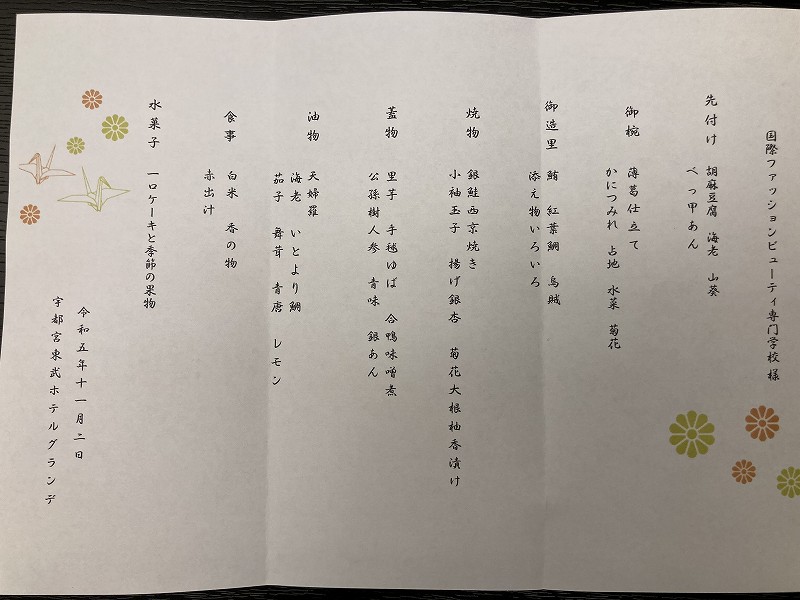 国際ファッションビューティ専門学校 様
先付け　胡麻豆腐　海老　山葵
べっ甲あん
御椀　薄葛仕立て
かにつみれ　占地　水菜　菊花
御造里　鮪　紅葉鯛　烏賊
添え物いろいろ
焼物　銀鮭西京焼き
小袖玉子　揚げ銀杏　菊花大根柚香漬け
蓋物　里芋　手毬ゆば　合鴨味噌煮
公孫樹人参　青味　銀あん
油物　天婦羅
海老　いとより鯛
茄子　舞茸　青唐　レモン
食事　白米　香の物
赤出汁
水菓子　一口ケーキと季節の果物
令和五年十一月二日
宇都宮東武ホテルグランデ